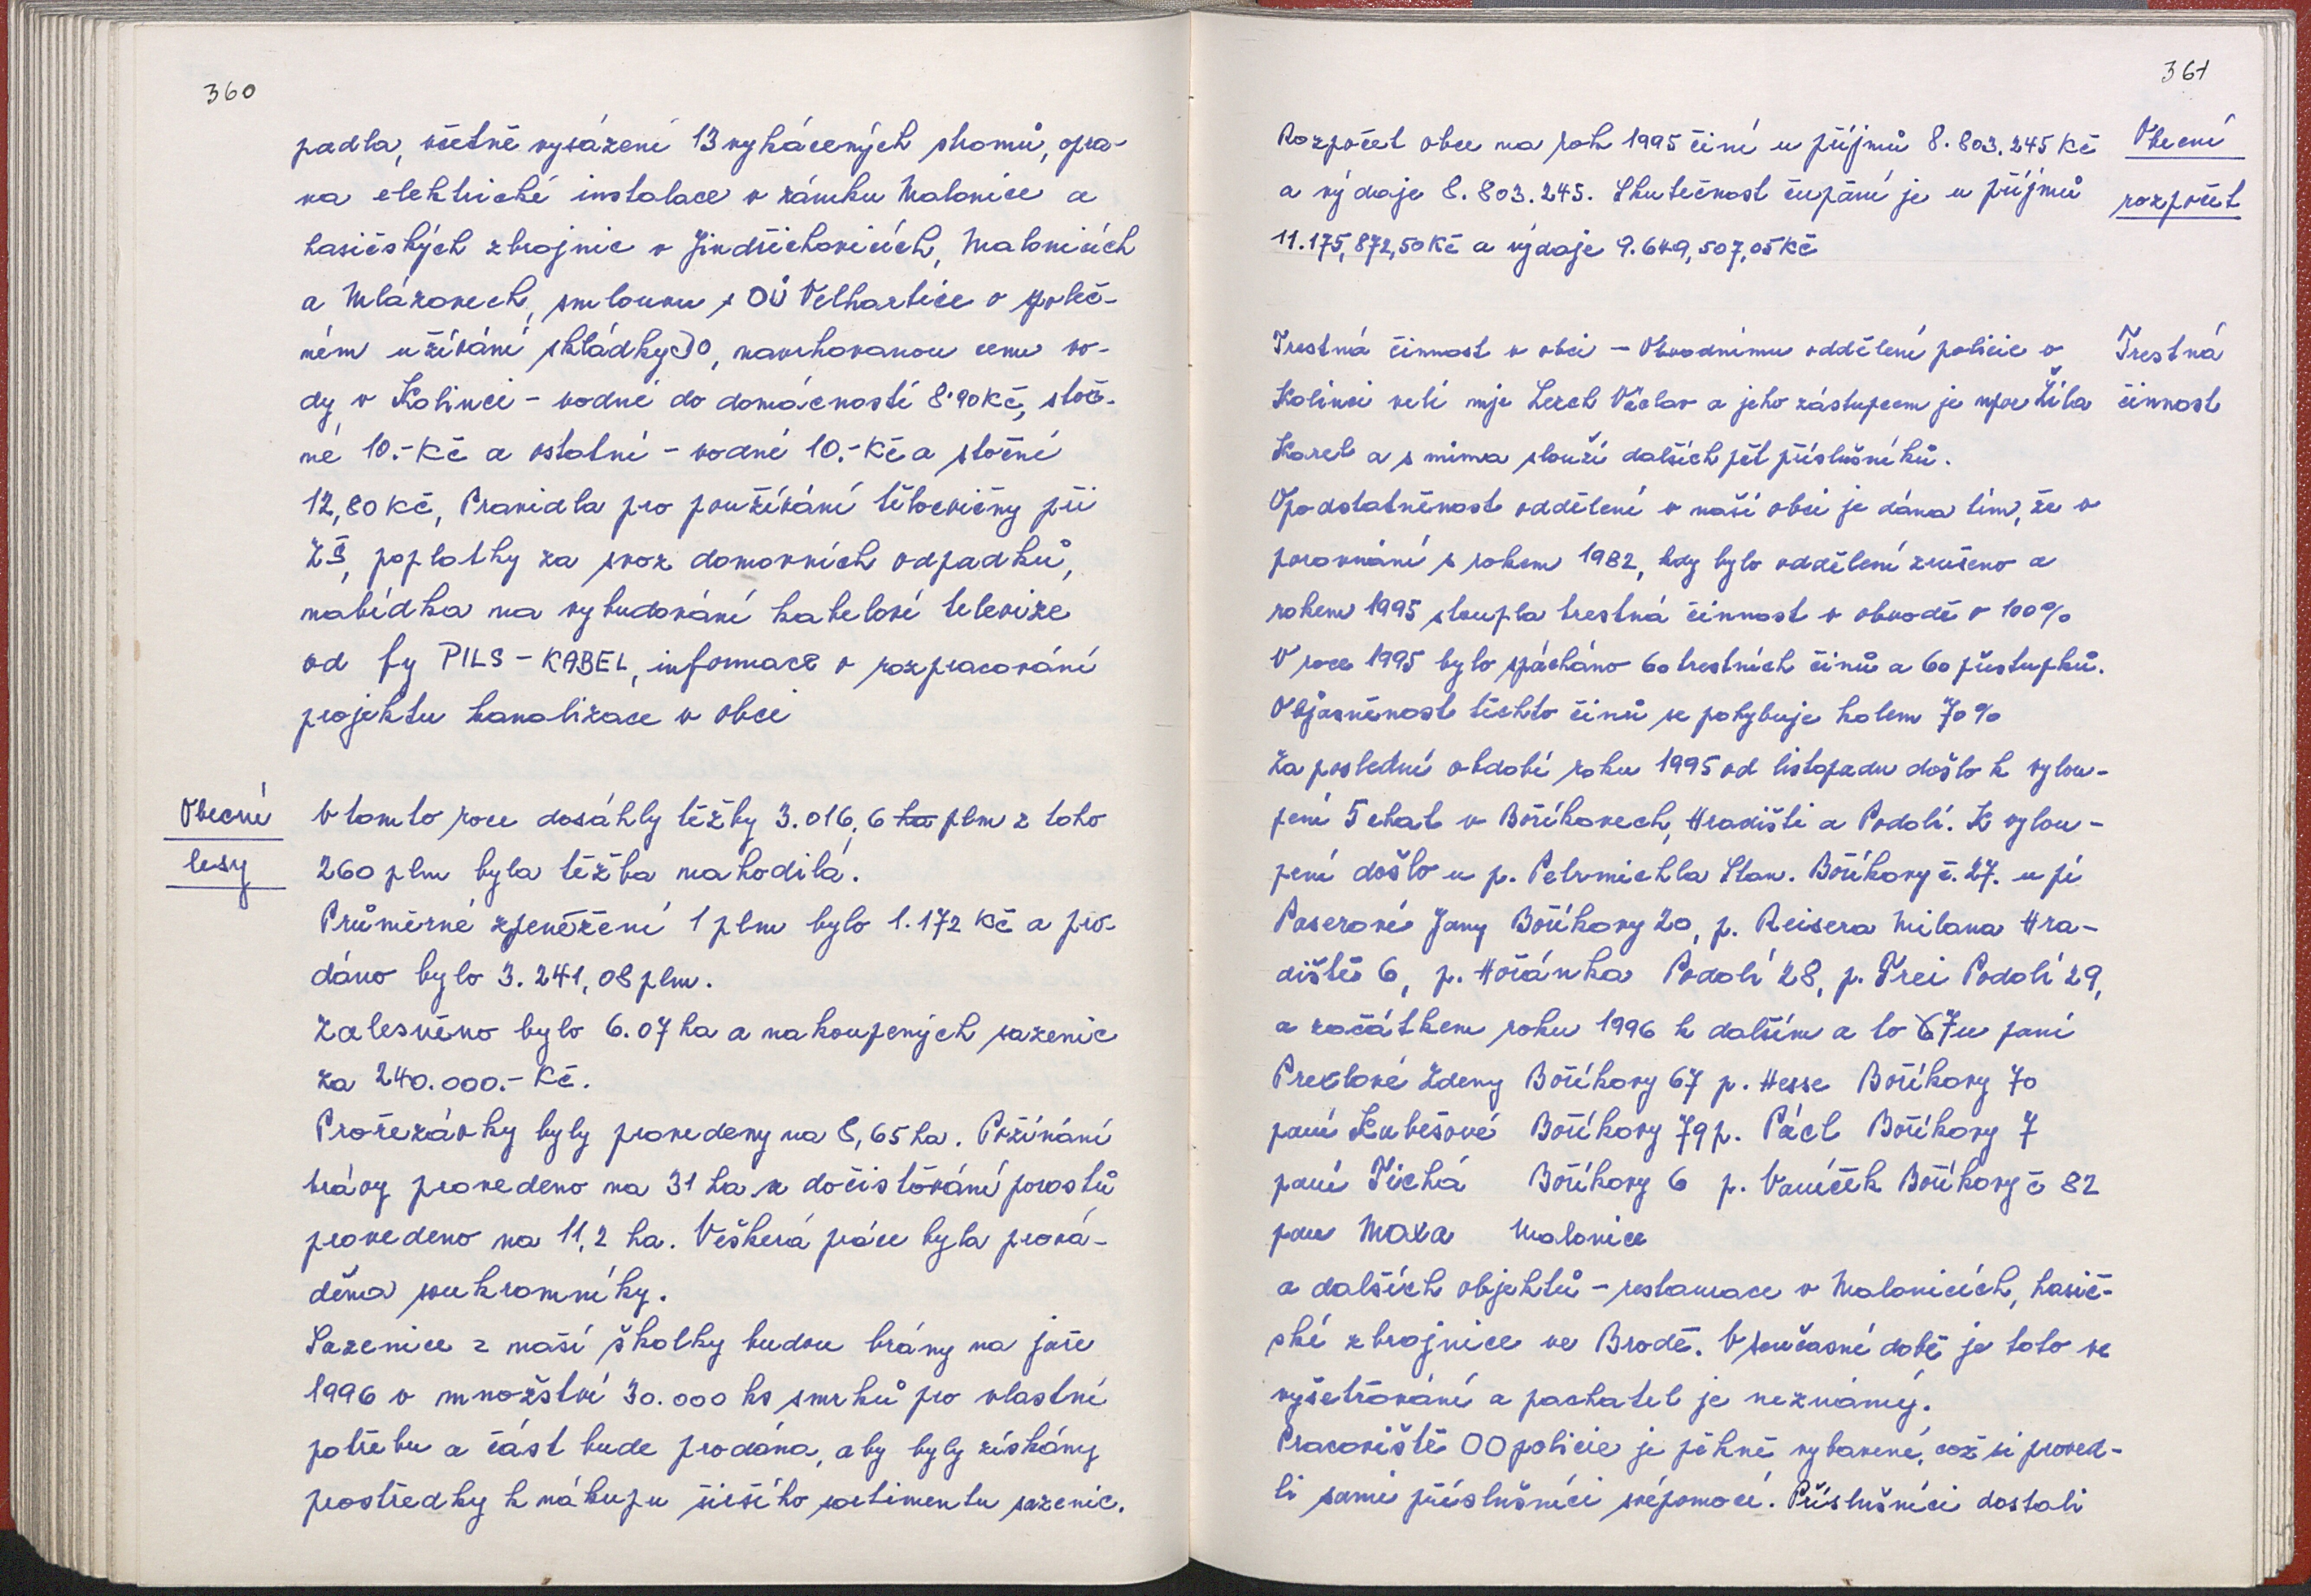 360
padla, včetně vysázení 13 vykácených stromů, opra-
va elektrické instalace v zámku Malonice a
hasičských zbrojnic v Jindřichovicích, Malonicích
a Mlázovech, smlouvu s OÚ Velhartice o společ-
ném užívání skládky DO, navrhovanou cenu vo-
dy v Kolinci - vodné do domácností 8.90 Kč, stoč-
né 10.- Kč a ostatní - vodné 10.- Kč a stočné
12,80 Kč, Pravidla pro používání tělocvičny při
ZŠ, poplatky za svoz domovních odpadků,
nabídka na vybudování kabelové televize
od fy PILS - KABEL, informace o rozpracování
projektu kanalizace v obci
Obecní
lesy
V tomto roce dosáhly těžby 3.016,6 ha plm z toho
260 plm byla těžba nahodilá.
Průměrné zpeněžení 1 plm bylo 1.172 Kč a pro-
dáno bylo 3.241,08 plm.
Zalesněno bylo 6.07 ha a nakoupených sazenic
za 240.000.- Kč.
Prořezávky byly provedeny na 8,65 ha. Požínání
trávy provedeno na 31 ha a dočisťování porostů
provedeno na 11,2 ha. Veškerá práce byla prová-
děna soukromníky.
Sazenice z naší školky budou brány na jaře
1996 v množství 30.000 ks smrků pro vlastní
potřebu a část bude prodána, aby byly získány
prostředky k nákupu širšího sortimentu sazenic.
361
Rozpočet obce na rok 1995 činí u příjmů 8.803.245 Kč
a výdaje 8.803.245. Skutečnost čerpání je u příjmů
11.175,872,50 Kč a výdaje 9.649,507,05 Kč
Obecní
rozpočet
Trestná činnost v obci - Obvodnímu oddělení policie v
Kolinci velí mjr Lerch Václav a jeho zástupcem je npor Šíla
Karel a s nima slouží dalších pět příslušníků.
Trestná
činnost
Opodstatněnost oddělení v naší obci je dána tím, že v
porovnání s rokem 1982, kdy bylo oddělení zrušeno a
rokem 1995 stoupla trestná činnost v obvodě o 100%
V roce 1995 bylo spácháno 60 trestních činů a 60 přestupků.
Objasněnost těchto činů se pohybuje kolem 70%
Za poslední období roku 1995 od listopadu došlo k vylou-
pení 5 chat v Boříkovech, Hradišti a Podolí. K vylou-
pení došlo u p. Petrmichla Stan. Boříkovy č. 27. u pí
Poserové Jany Boříkovy 20, p. Reisera Milana Hra-
diště 6, p. Hořánka Podolí 28, p. Frei Podolí 29,
a začátkem roku 1996 k dalším a to 7 u paní
Prexlové Zdeny Boříkovy 67 p. Hesse Boříkovy 70
paní Kubešové Boříkovy 79 p. Pácl Boříkovy 7
paní Tichá Boříkovy 6 p. Vaníček Boříkovy č 82
pan Maxa Malonice
a dalších objektů - restaurace v Malonicích, hasič-
ské zbrojnice ve Brodě. V současné době je toto ve
vyšetřování a pachatel je neznámý.
Pracoviště OO policie je pěkně vybavené, což si proved-
li sami příslušníci svépomocí. Příslušníci dostali